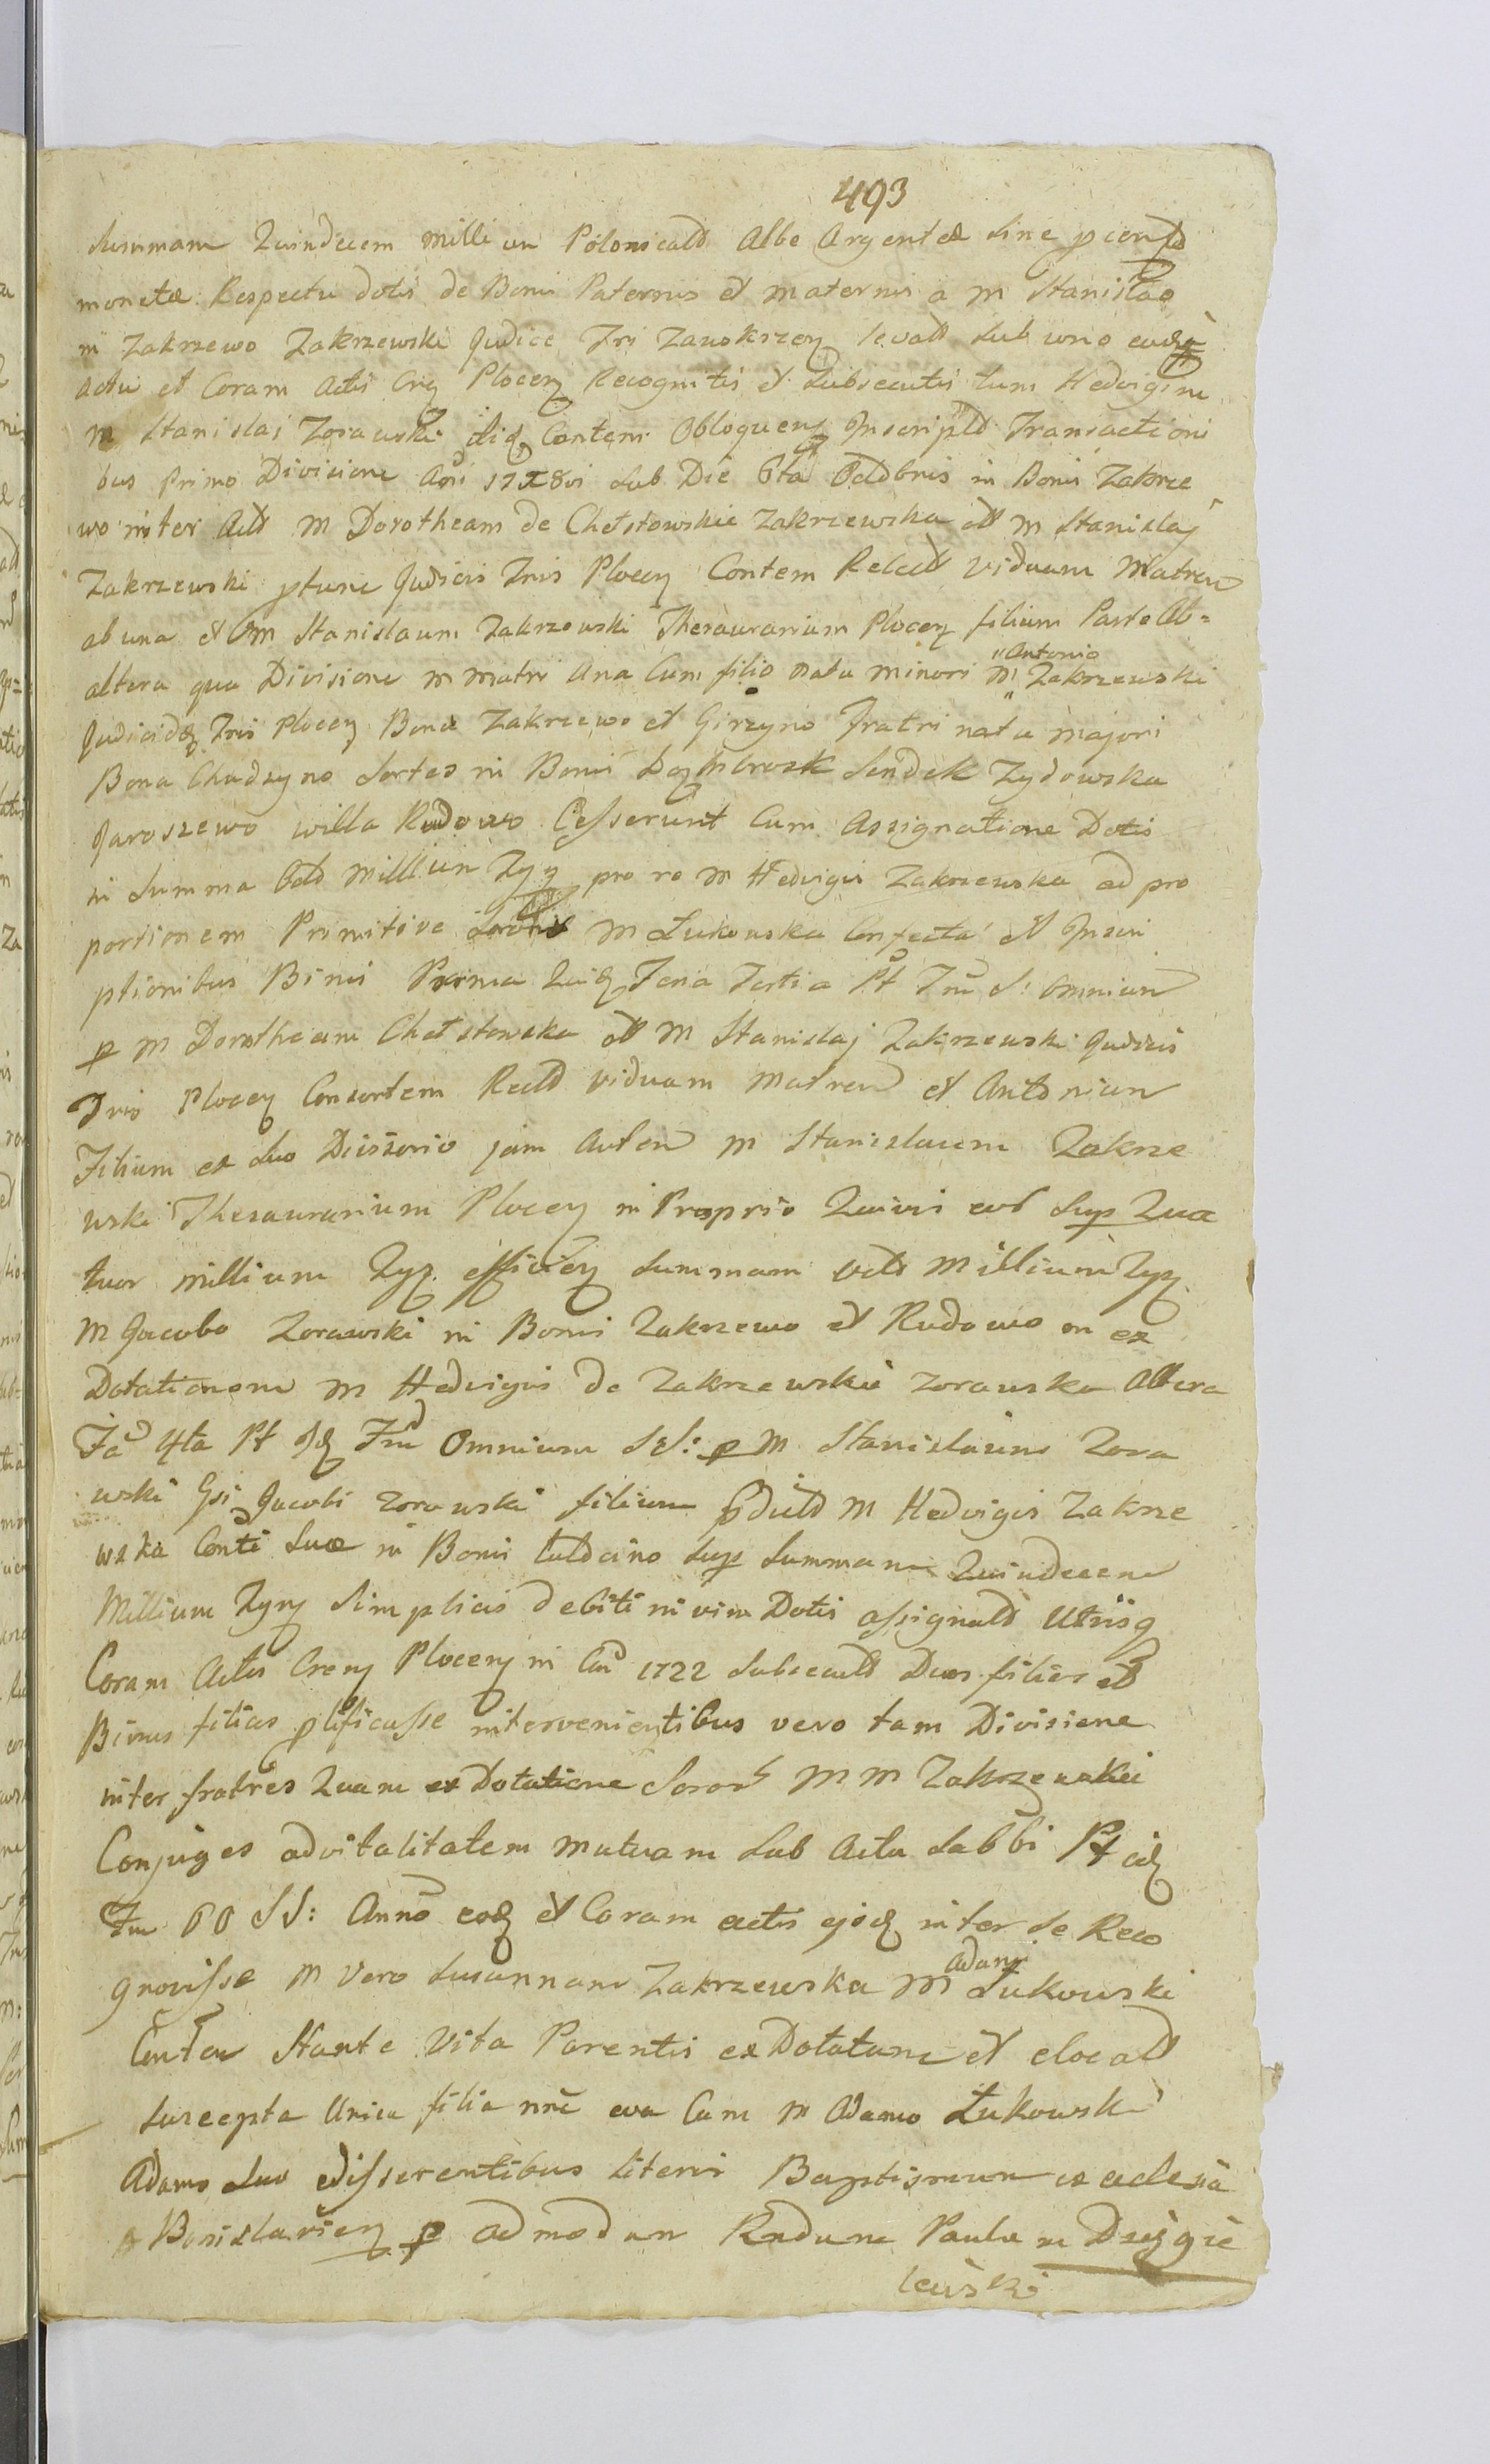 493
Summam Quindecem millium Polonicald Albe Argenteæ sine
monetæ Respectu dotis de Bonis Paternis et maternis a M Stanislao
in Zakrzewo Zakrzewski Judice Tri Zawokrzen levatt sub uno
actu et Coram Actis Crn Plocen Recognitis et Subsecutis tum Hedvigim
M Stanislaj Zorawski Contem Obloquen Inscriptd Transactioni
bus Primo Divisione Ani sub Die 6ta 8bris in Bonis Zakrze
wo inter M Dorotheam de Chełstowskie Zakrzewska M Stanislaj
Zakrzewski ptunc Judicis Tris Plocen Contem Relcdt viduam Matrem
ab una et M Stanislaum Zakrzewski Thesaurarium Plocen filium Parte Ab=
altera qua Divisione M Matri Una Cum filio natu minori M "Antonio Zakrzewski
Judicide Tris Plocen Bona Zakrzewo et Girzyno Fratri natu majori
Bona Chudzyno Sortes in Bonis Sendek Zydowska
Jaroszewo willa Rudowo Cesserunt Cum Assignatione Dotis
in Summa Octo Millium pro re M Hedvigis Zakrzewska ad pro
portionem Primitive M Łukowska Confecta et Inscri
ptionibus Binis Prima Feria Tertia Pt Tm S: Omnium
p M Dorotheam Chełstowska M Stanislaj Zakrzewski Judicis
Tris Plocen Consortem Rectd viduam Matrem et Antonium
Filium ex Suo Divisorio jam Autem M Stanislaum Zakrze
wski Thesaurarium Plocen in Proprio Quivi Sup Qua
tuor millium efficien Summam Octo Millium
M Jacobo Zorawski in Bonis Zakrzewo et Rudowo ex
Dotationem M Hedvigis de Zakrzewskie Zorawska Altera
Fa 4ta Pt Omnium SS: p M Stanislaum Zora
wski Gsi Jacobi Zorawski filium M Hedvigis Zakrze
wska Conti Suæ in Bonis sup Summam Quindecem
Millium Simplicis debiti in vim Dotis assignatd Utrisq
Coram Actis Cren Plocen in An 1722 Duos filios et
Binas filias plificasse intervenientibus vero tam Divisione
inter fratres Quam ex Dotatione Soror M M Zakrzewskie
Conjuges advitalitatem mutuam Sub Actu Sabbi Pt
Fm 60 SS: Anno eod et Coram actis ejsd inter Se Reco
gnovisse M Vero Susannam Zakrzewska M Adam Łukowski
Contem Stante Vita Parentis exDotatam et elocatt
Suscepta Unica filia nne eva Cum M Adamo Łukowski
Adamo Suo edisserentibus literis Baptismum ex aclesia
Borislavien p admodum Rndum Paulum Dzięgie
lewski